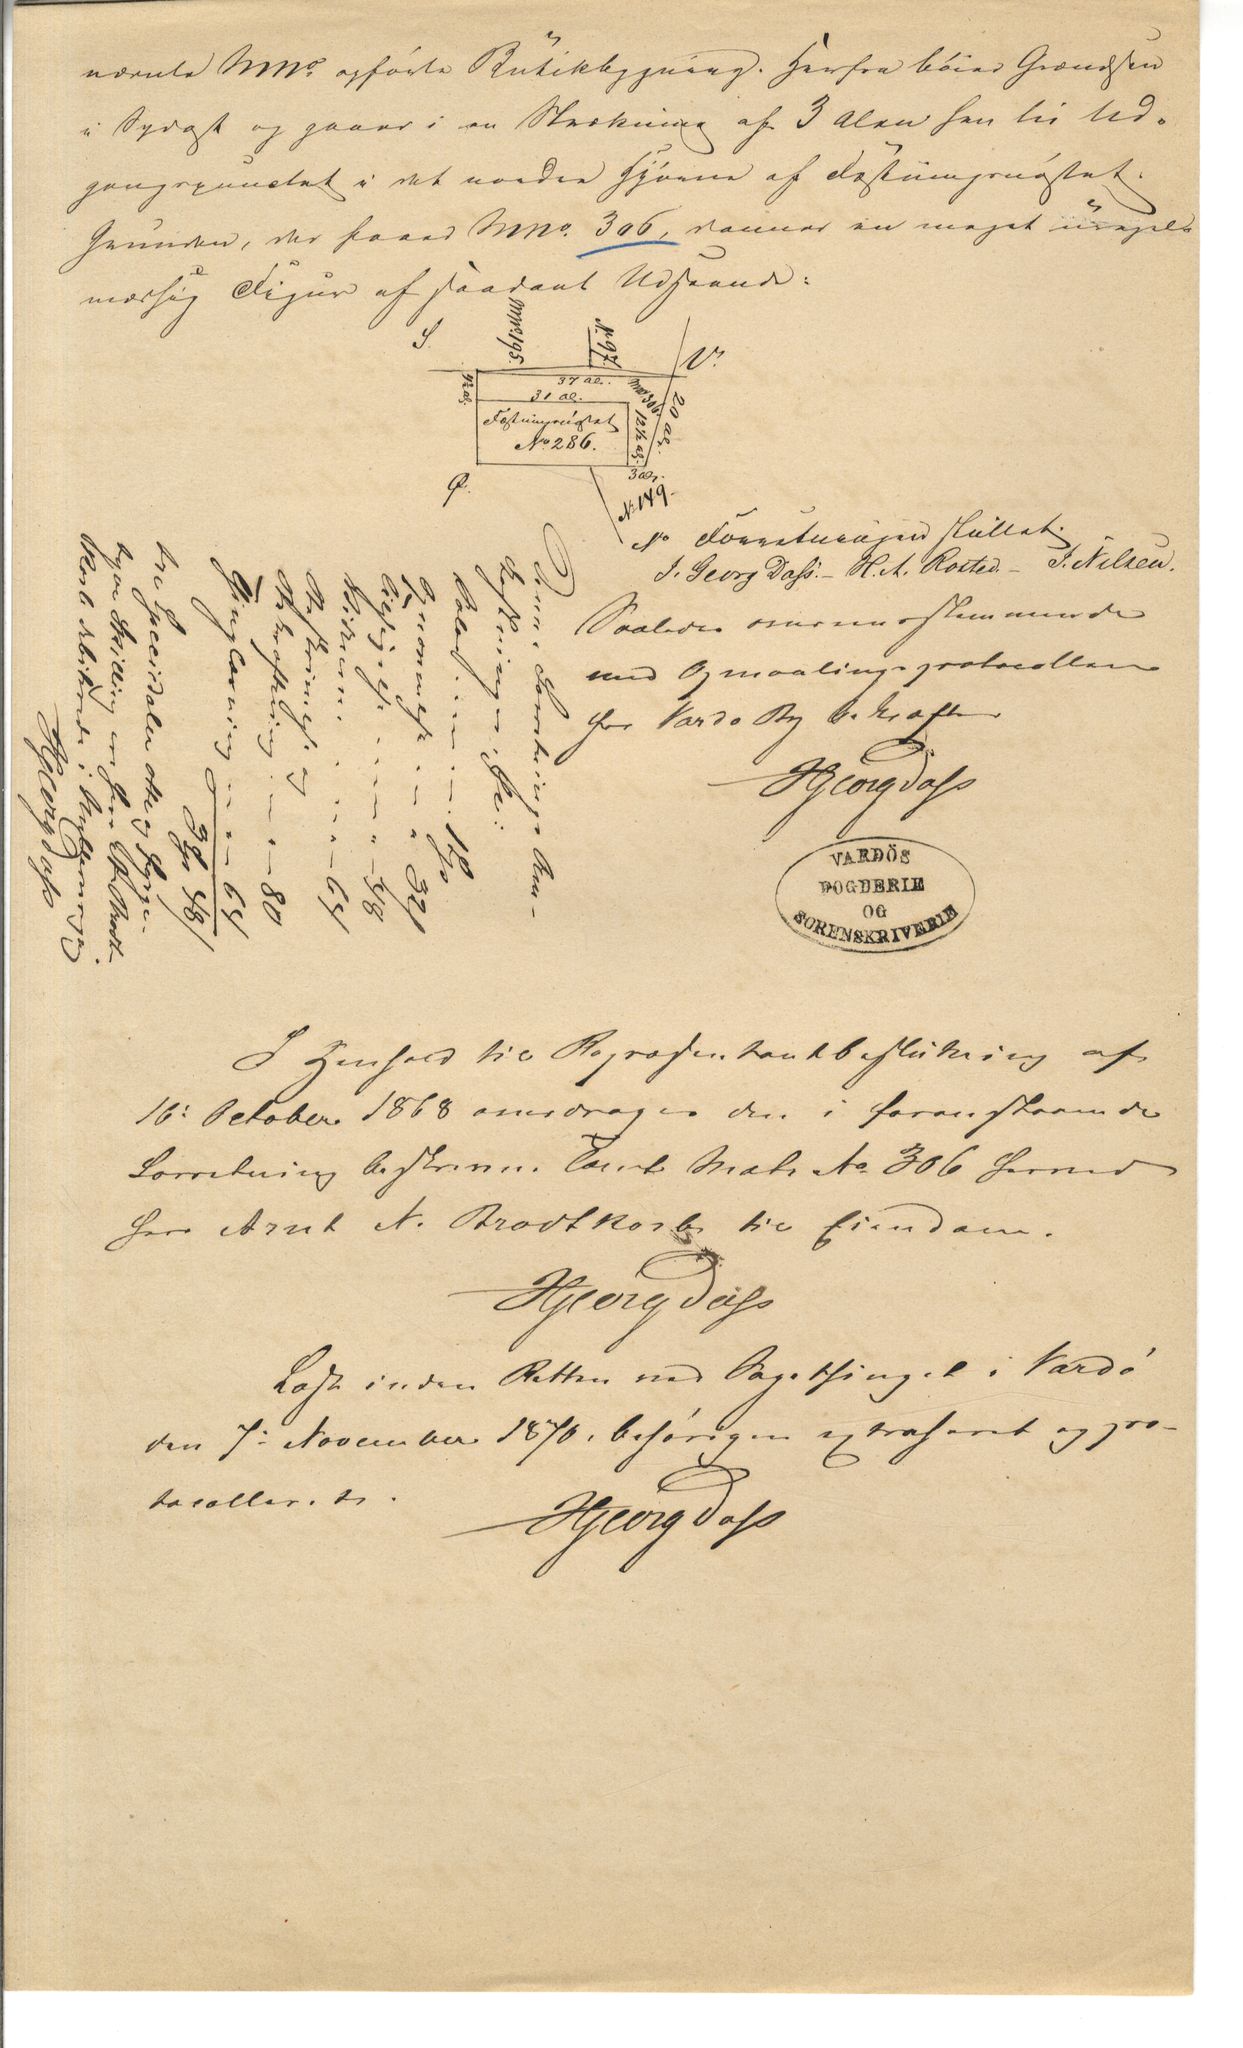 nævnte MNo. opførte Butikbygning. Herfra bøier Grændsen
i Sydost og gaaer i en Strækning af 3 Alen hen til Ud-
gangspunctet i det nordre Hjørne af Fæstningsnøstet.
Grunden, der faaer MNo. 306, danner en meget uregel-
mæssig Figur af saadant Udseende:
S.
MNo. 195.
N. 97.
V.
37 al.
4½ al.
31 al.
MNo 306.
20 al.
12½ al.
Fæstningsnøstet
No 286.
3 al.
Ø.
No. 149.
N.
Forretningen sluttet.
J. Georg Dass. – H. A. Rosted. – J. Nilsen.
Saaledes overensstemmende
med Opmaalingsprotocollen
for Vardø By bekræftes
HGeorg Dass
VARDÖS
FOGDERIE
OG
SORENSKRIVERIE
Denne Forretnings Om-
kostninger er:
1
32
48
64
Beskrivelse og
Bekræftning – " – 80
Tinglæsning " – " – 64
3 48
tre Speciedaler otte og fyrre-
tyve Skilling er Hr A. Brodt-
korb debiteret i
HGeorg Dass
I Henhold til Repræsentantbeslutning af
16: October 1868 overdrages den i foranstaaende
Forretning beskrevne Tomt Matr No 306 herved
Herr Arnt N. Brodtkorb til Eiendom.
HGeorg Dass
Læst inden Retten ved Bygethinget i Vardø
den 7: November 1870, behørigen extraheret og pro-
tocolleret.
HGeorg Dass